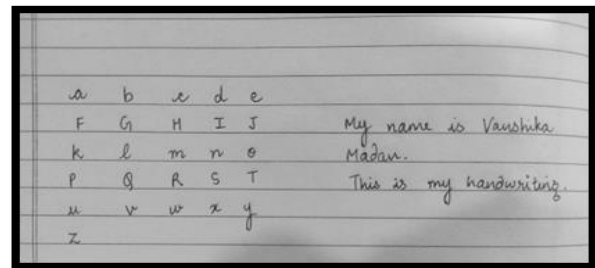 a b c d e
F G H I J
k l m n o
P Q R S T
u v w x y
z
My name is Vanshika
Madan.
This is my handwriting.